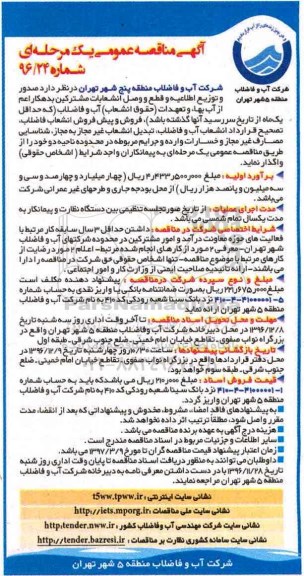 آگهی مناقصه عمومی یک مرحله‌ای
شماره ۹۶/۲۴
شرکت آب و فاضلاب
منطقه ۵ شهر تهران
شرکت آب و فاضلاب منطقه پنج شهر تهران در نظر دارد صدور
و توزیع اطلاعیه و قطع و وصل انشعابات مشترکین بدهکار اعم
از آب بها، و تعهدات (حقوق انشعاب) آب و فاضلاب (که حداقل
یک‌ماه از تاریخ سررسید آنها گذشته باشد)، فروش و پیش فروش انشعاب فاضلاب،
تصحیح قرارداد انشعاب آب و فاضلاب، تبدیل انشعاب غیر مجاز به مجاز، شناسایی
مصارف غیر مجاز و خسارات وارده و جرایم مربوطه در محدوده ناحیه دو خود را از
طریق مناقصه عمومی یک مرحله‌ای به پیمانکاران واجد شرایط (اشخاص حقوقی)
واگذار نماید.
برآورد اولیه : مبلغ ۴,۴۳۳,۵۰۰,۰۰۰ ریال (چهار میلیارد و چهارصد و سی و
سه میلیون و پانصد هزار ریال) از محل بودجه جاری و طرحهای غیر عمرانی شرکت
می باشد.
مدت اجرای عملیات : از تاریخ صورتجلسه تنظیمی بین دستگاه نظارت و پیمانکار به
مدت یکسال تمام شمسی می باشد.
شرایط اختصاصی شرکت در مناقصه : داشتن حداقل ۳ سال سابقه کار مرتبط با
فعالیت های حوزه معاونت درآمد و امور مشترکین در محدوده شرکتهای آب و فاضلاب
شهر تهران
کارهای مرتبط با موضوع مناقصه- تنها اشخاص حقوقی حق شرکت در مناقصه را دارا
می باشند- ارائه تائیدیه صلاحیت ایمنی از وزارت کار و امور اجتماعی
مبلغ و نوع سپرده شرکت در مناقصه : پیشنهاد دهنده مکلف است
نزد بانک سینا شعبه رودکی کد ۴۱۰ به نام شرکت آب و فاضلاب
منطقه ۵ شهر تهران ارائه نماید
مهلت و محل تحویل اسناد مناقصه : تا آخر وقت اداری روز سه شنبه تاریخ
۱۳۹۶/۱۲/۸ در محل دبیرخانه شرکت آب و فاضلاب منطقه ۵ شهر تهران واقع در
بزرگراه نواب صفوی ـ تقاطع خیابان امام خمینی ـ ضلع جنوب شرقی ـ طبقه اول
تاریخ بازگشائی پیشنهادها : ساعت ۱۰/۳۰ روز چهارشنبه تاریخ ۱۳۹۶/۱۲/۹ در
محل دفتر قراردادها واقع در بزرگراه نواب صفوی ـ تقاطع خیابان امام خمینی ـ ضلع
جنوب شرقی ـ طبقه سوم خواهد بود.
قیمت فروش اسناد : مبلغ ۲۱۰,۰۰۰ ریال می باشد که باید به حساب شماره
نزد بانک سینا شعبه رودکی کد ۴۱۰ به نام شرکت آب و فاضلاب
منطقه ۵ شهر تهران واریز گردد.
به پیشنهادهای فاقد امضاء، مشروط، مخدوش و پیشنهاداتی که بعد از انقضاء مدت
مقرر واصل شود، مطلقاً ترتیب اثر داده نخواهد شد.
هزینه درج آگهی به عهده برنده مناقصه می باشد.
سایر اطلاعات و جزئیات مربوط در اسناد مناقصه مندرج است.
زمان اعتبار پیشنهاد قیمت مناقصه گران تا مورخ ۱۳۹۷/۳/۹ می باشد.
داوطلبان می توانند به منظور دریافت اسناد مناقصه تا پایان وقت اداری روز شنبه
تاریخ ۱۳۹۶/۱۱/۲۸ با در دست داشتن معرفی نامه به دبیرخانه شرکت آب و فاضلاب
منطقه ۵ شهر تهران مراجعه نمایند.
نشانی سایت اینترنتی : t5ww.tpww.ir
نشانی سایت ملی مناقصات : http://iets.mporg.ir
نشانی سایت شرکت مهندسی آب و فاضلاب کشور : http:tender.nww.ir
نشانی سامانه کشوری نظارت بر مناقصات : http://tender.bazresi.ir
شرکت آب و فاضلاب منطقه ۵ شهر تهران